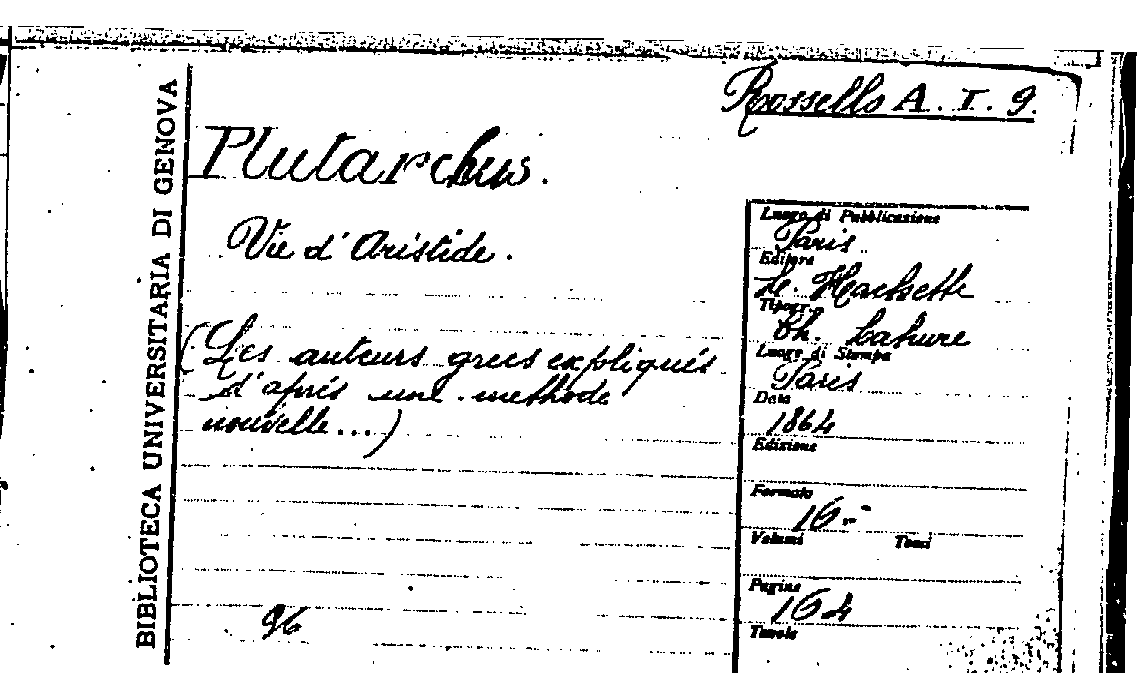 Rossello A. I. 9.
BIBLIOTECA UNIVERSITARIA DI GENOVA
Plutarchus.
Vie d'Aristide.
(Les auteurs grecs expliqués
d'après une methode
nouvelle...)
96
Luogo di Pubblicazione
Paris
Editore
L. Hachette
Tipogr.
Ch. Lahure
Luogo di Stampa
Paris
Data
1864
Edizione
Formato
16.-
Volumi Tomi
Pagine
164
Tavole